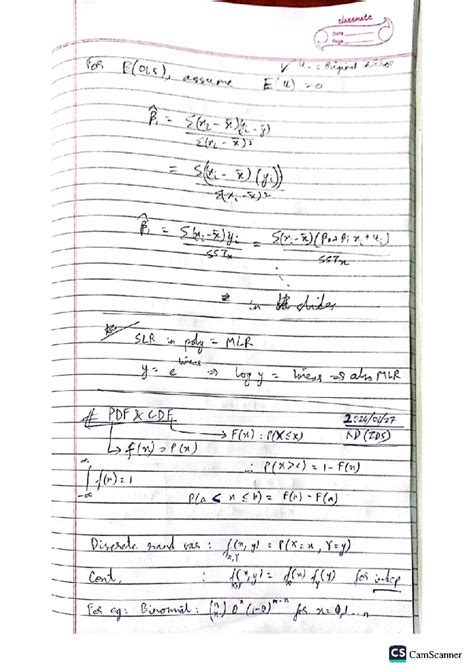 classmate
Date
Page
For E(OLS), assume E(u) = 0
β̂₁ = Σ(xᵢ - x̄)(yᵢ - ȳ) / Σ(xᵢ - x̄)²
= Σ(xᵢ - x̄)(yᵢ) / Σ(xᵢ - x̄)²
β̂₁ = Σ(xᵢ - x̄)yᵢ / SSTx = Σ(xᵢ - x̄)(β₀ + β₁xᵢ + uᵢ) / SSTx
in slides
SLR in poly = MLR
y = e^linear ⇒ log y = linear ⇒ also MLR
# PDF & CDF
2024/02/27
→ F(x) : P(X ≤ x)
ND (IDS)
→ f(x) = P(x)
∴ P(x > c) = 1 - F(x)
∫_{-∞}^{∞} f(x) = 1
P(a ≤ x ≤ b) = F(b) - F(a)
Discrete rand var : f_{X,Y}(x, y) = P(X = x, Y = y)
Cont. : f_{X,Y}(x, y) = f_X(x) f_Y(y) for indep
For eg: Binomial : (n x) θ^x (1-θ)^{n-x} for x = 0,1...n
CS CamScanner